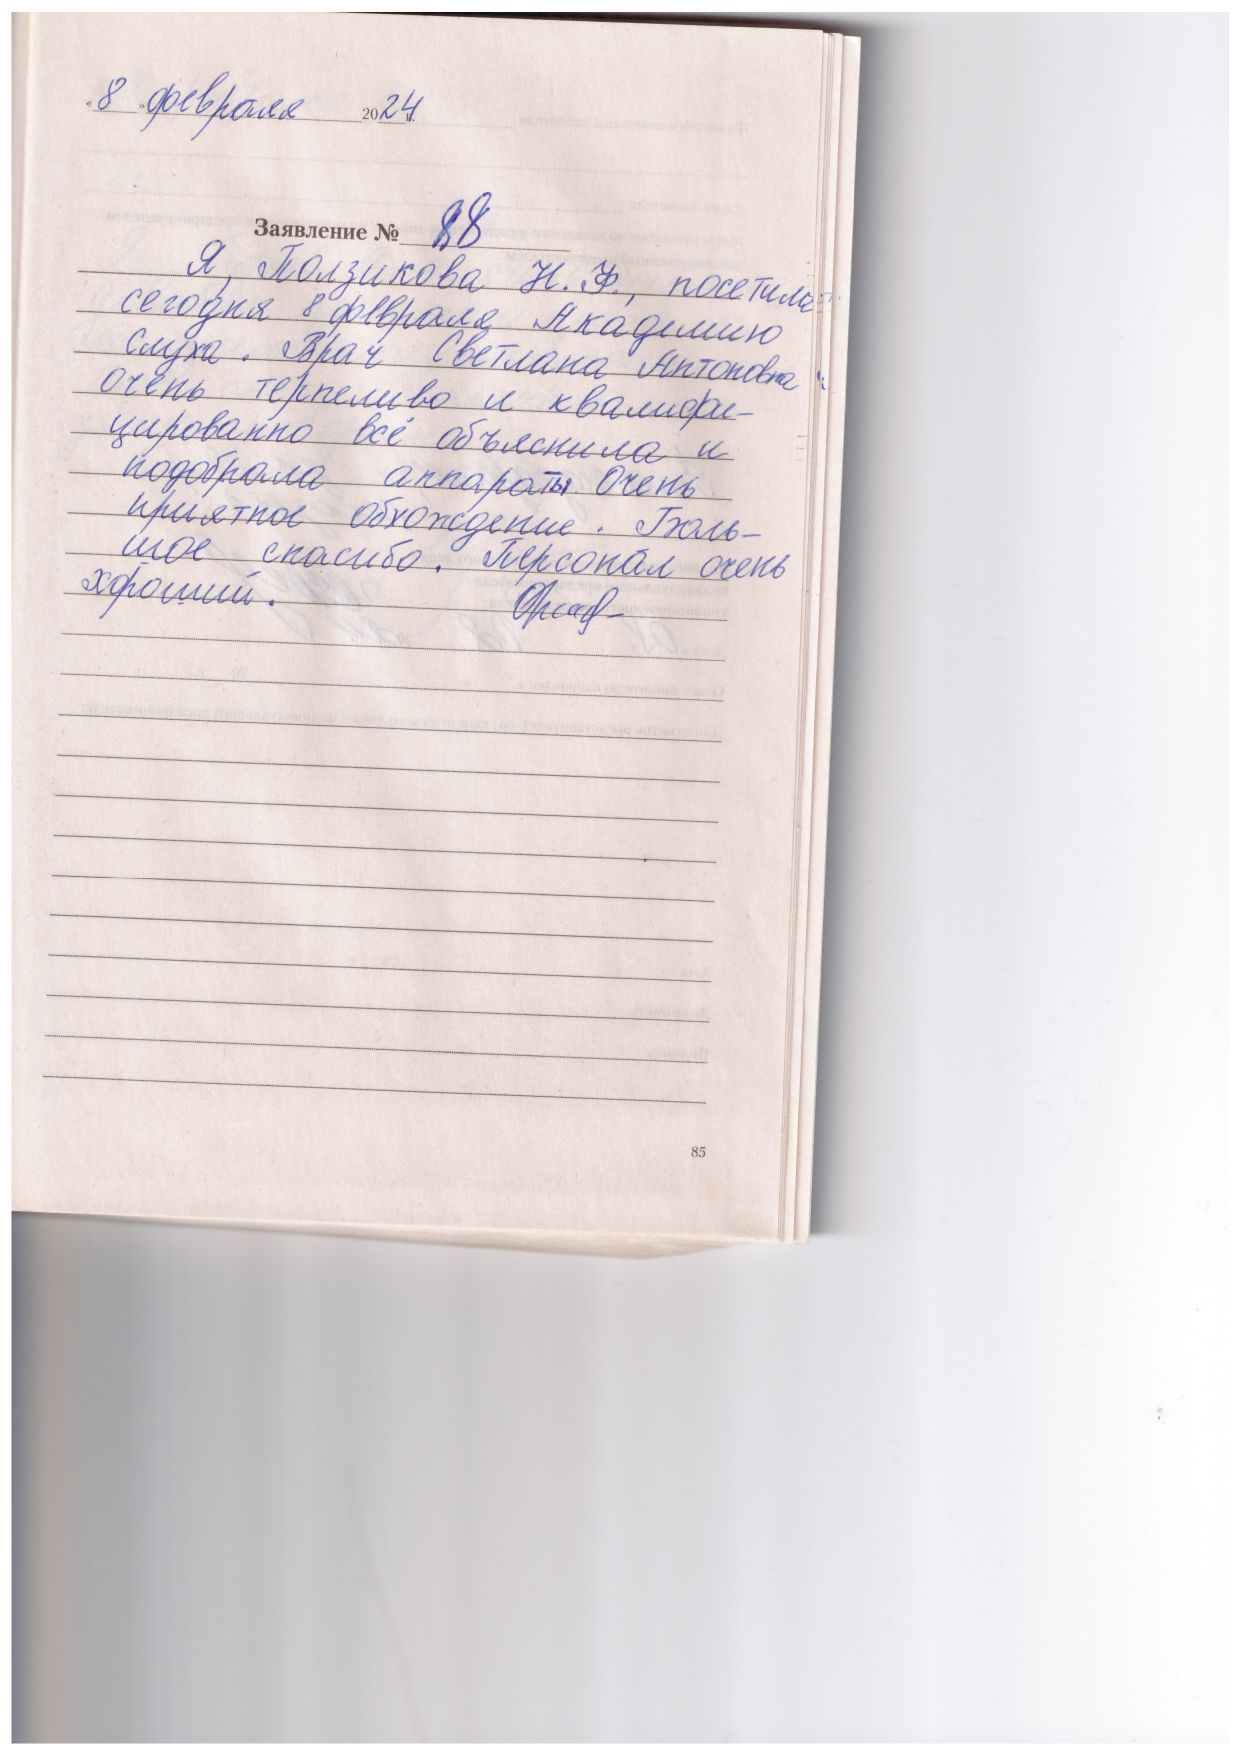 «8» февраля 2024 г.
Заявление № 88
Я, Ползикова Н. Ф., посетила
сегодня 8 февраля Академию
слуха. Врач Светлана Антоновна
очень терпеливо и квалифи-
цированно всё объяснила и
подобрала аппараты. Очень
приятное обхождение. Боль-
шое спасибо. Персонал очень
хороший.
85